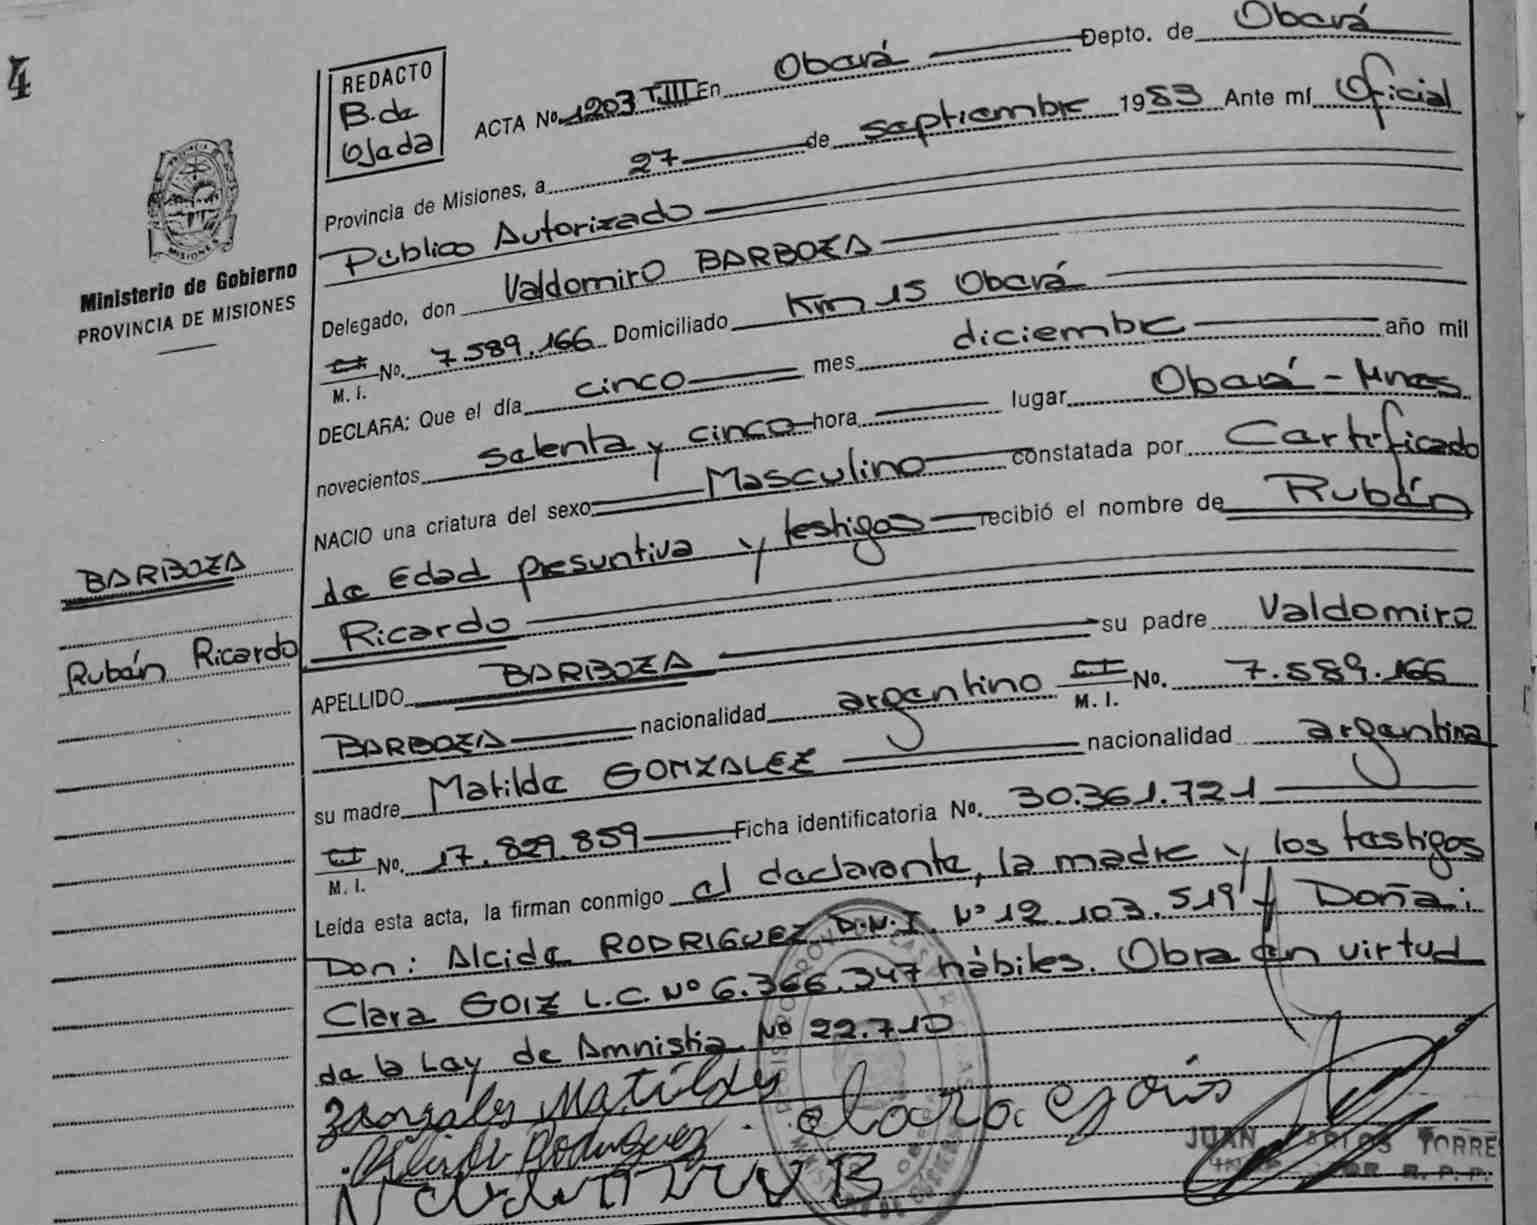 4
REDACTO
B. de
Ojeda
ACTA No. 1203 T.III En Oberá Depto. de Oberá
Provincia de Misiones, a 27 de septiembre 1983 Ante mí Oficial
Público Autorizado
Delegado, don Valdomiro BARBOZA
C.I. M. I. No. 7.589.166 Domiciliado Km 15 Oberá
DECLARA: Que el día cinco mes diciembre año mil
novecientos setenta y cinco hora lugar Oberá - Mnes
NACIO una criatura del sexo Masculino constatada por Certificado
de Edad presuntiva y testigos recibió el nombre de Rubén
Ricardo
APELLIDO BARBOZA su padre Valdomiro
BARBOZA nacionalidad argentino C.I. M. I. No. 7.589.166
su madre Matilde GONZALEZ nacionalidad argentina
C.I. M. I. No. 17.829.859 Ficha identificatoria No. 30.361.721
Leída esta acta, la firman conmigo el declarante, la madre y los testigos
Don: Alcide RODRIGUEZ D.N.I. Nº 12.103.519 y Doña:
Clara GOIZ L.C. Nº 6.366.347 hábiles. Obra en virtud
de la Ley de Amnistia Nº 22.710
Matilde
Alcide Rodriguez
Clara
JUAN CARLOS TORRE
R. P. P.
PROVINCIA
MISIONES
Ministerio de Gobierno
PROVINCIA DE MISIONES
BARBOZA
Rubén Ricardo